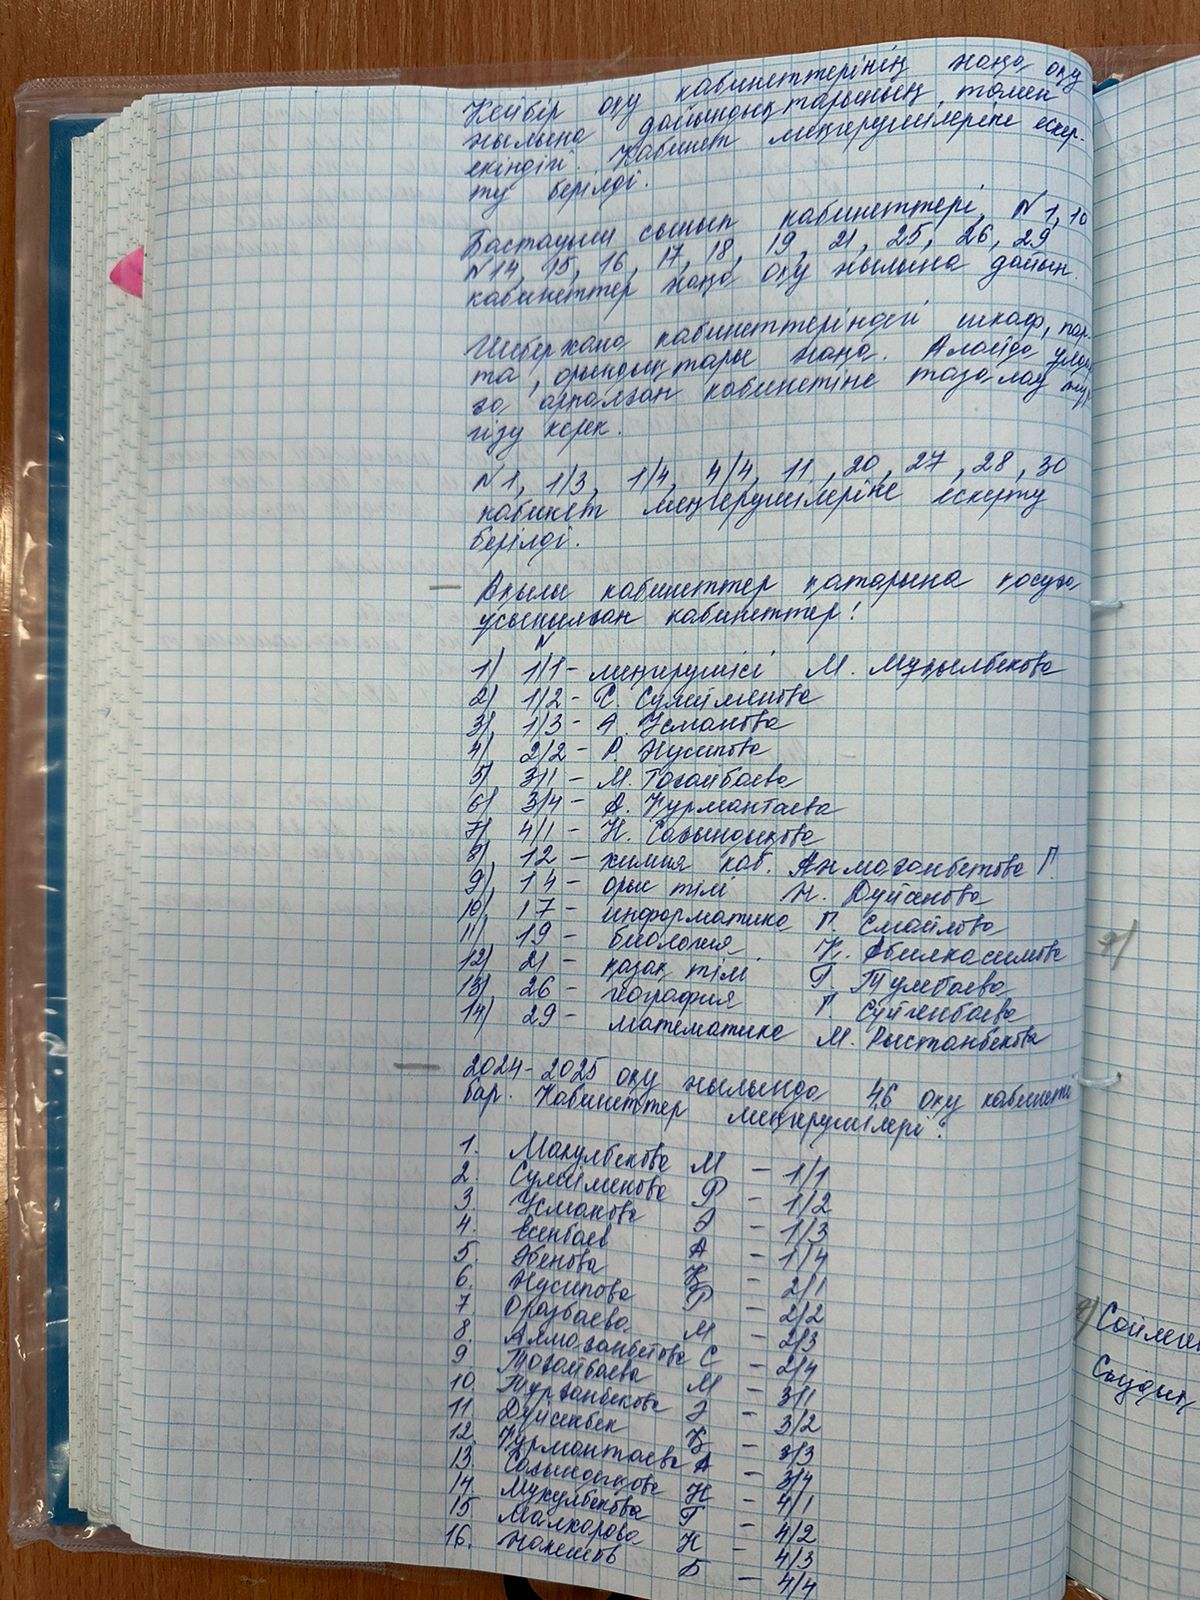 Кейбір оқу кабинеттерінің жаңа оқу
жылына дайындықтарының төмен
екіндігі. Кабинет меңгерушілеріне ескер-
ту берілді.
Бастауыш сынып кабинеттері, №1, 10
№14, 15, 16, 17, 18, 19, 21, 25, 26, 29
кабинеттер жаңа оқу жылына дайын.
Шеберхана кабинеттеріндегі шкаф, пар-
та, орындықтары жаңа. Алайда ұлдар
ға арналған кабинетіне тазалау жүр
гізу керек.
№1, 1/3, 1/4, 4/4, 11, 20, 27, 28, 30
кабинет меңгерушілеріне ескерту
берілді.
Ақылы кабинеттер қатарына қосуға
ұсынылған кабинеттер:
№
1) 1/1 - меңгерушісі М. Мұқылбекова
2) 1/2 - Р. Сулейменова
3) 1/3 - А. Усманова
4) 2/2 - Р. Нусипова
5) 3/1 - М. Тоғамбаева
6) 3/4 - А. Курмантаева
7) 4/1 - Н. Сағындықова
8) 12 - химия каб. Алмаганбетова Г.
9) 14 - орыс тілі Н. Дүйсенова
10) 17 - информатика Г. Смайлова
11) 19 - биология К. Әбилкасимова
12) 21 - қазақ тілі Г. Тулебаева
13) 26 - география Г. Сүйгенбаева
14) 29 - математика М. Рыстанбекова
2024-2025 оқу жылында 46 оқу кабинеті
бар. Кабинеттер меңгерушілері:
1. Макулбекова М - 1/1
2. Сулейменова Р - 1/2
3. Усманова Ә - 1/3
4. Есенбаев А - 1/4
5. Әбенова Қ - 2/1
6. Нусипова Р - 2/2
7. Оразбаева М - 2/3
8. Алмаганбетова С - 2/4
9. Тоғамбаева М - 3/1
10. Турганбекова Ә - 3/2
11. Дүйсенбек Қ - 3/3
12. Курмантаева А - 3/4
13. Сағындықова Н - 4/1
14. Мукулбекова Г - 4/2
15. Малкарова Н - 4/3
16. Жанешов Б - 4/4